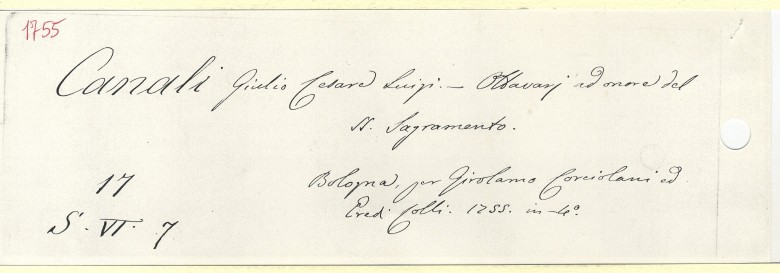 1755
Canali Giulio Cesare Luigi. — Ottavarj ad onore del
SS. Sagramento.
17
S. VI. 7
Bologna, per Girolamo Corciolani ed
Eredi Colli. 1755. in-4º.